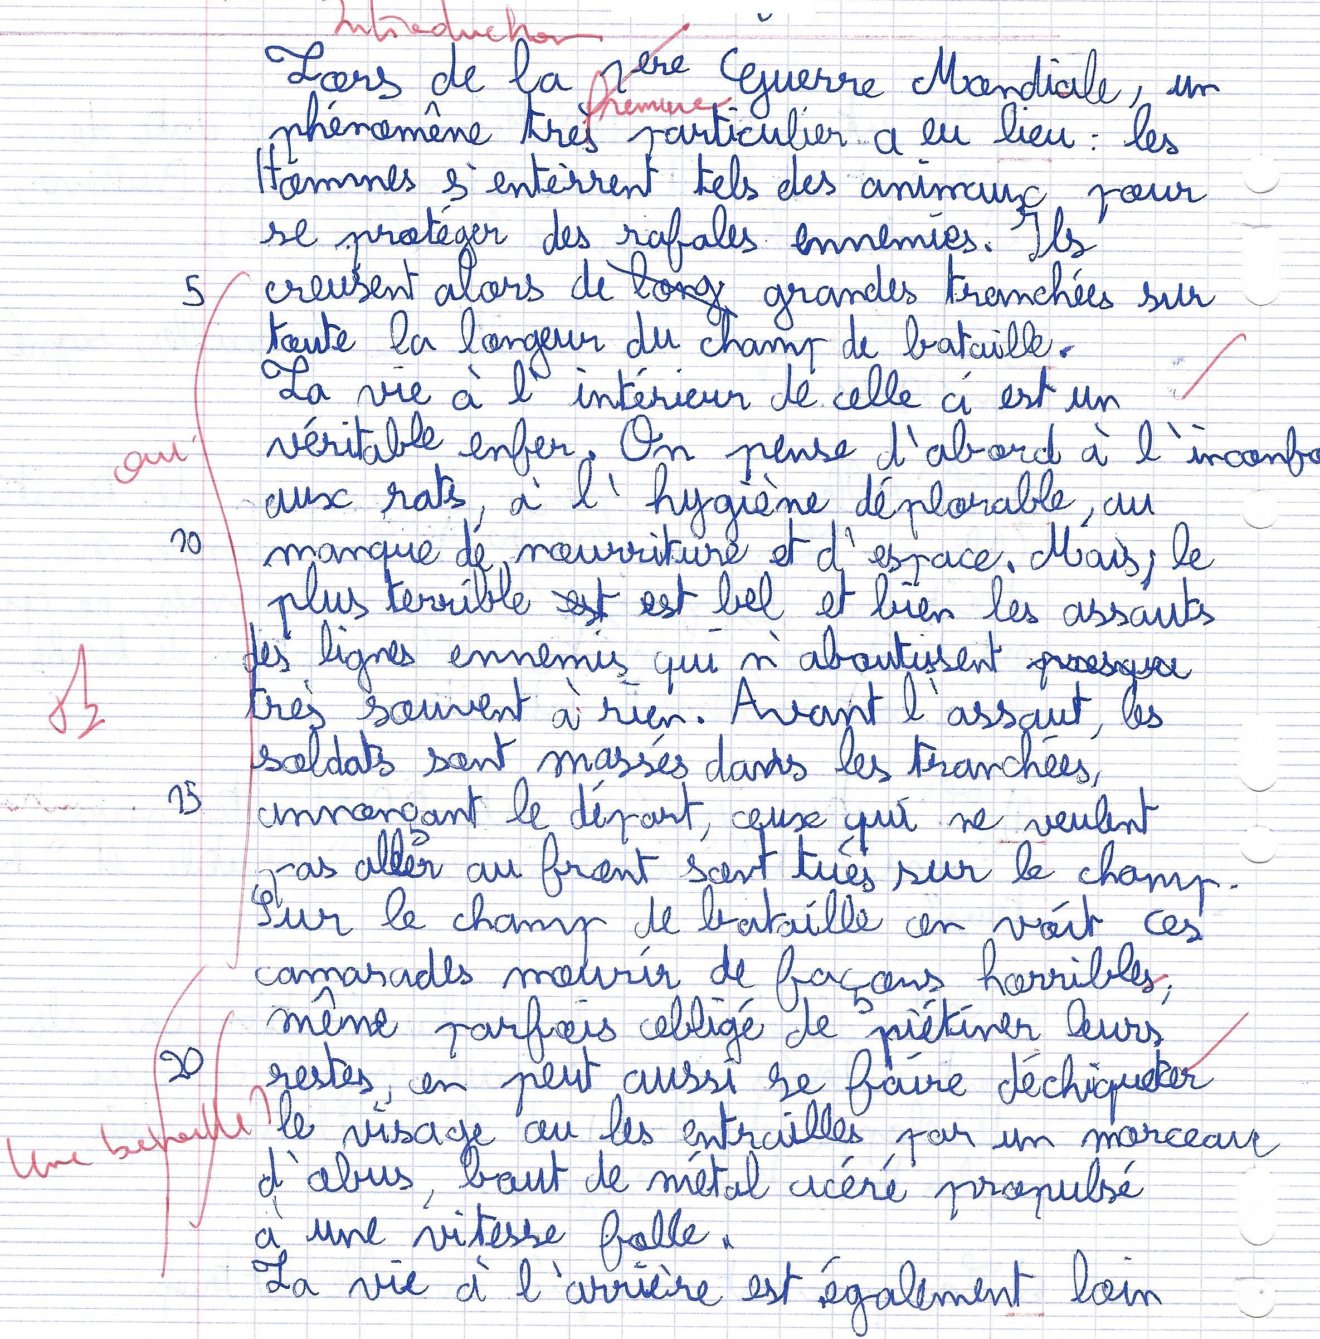 Introduction
Lors de la 1ère Guerre Mondiale, un
première
phénomène très particulier a eu lieu : les
Hommes s'enterrent tels des animaux pour
se protéger des rafales ennemies. Ils
5 creusent alors de long grandes tranchées sur
toute la longeur du champ de bataille.
La vie à l'intérieur de celle ci est un
véritable enfer. On pense d'abord à l'inconfo
oui
aux rats, à l'hygiène déplorable, au
10 manque de nourriture et d'espace. Mais, le
plus terrible est est bel et bien les assauts
des lignes ennemis qui n'aboutissent presque
très souvent à rien. Avant l'assaut, les
soldats sont massés dans les tranchées,
15 annonçant le départ, ceux qui ne veulent
pas aller au front sont tués sur le champ.
Sur le champ de bataille on voit ces
camarades mourir de façons horribles,
même parfois obligé de piétiner leurs
20 restes, on peut aussi se faire déchiqueter
Une bataille ?
le visage ou les entrailles par un morceau
d'abus, bout de métal acéré propulsé
à une vitesse folle.
La vie à l'arrière est également loin